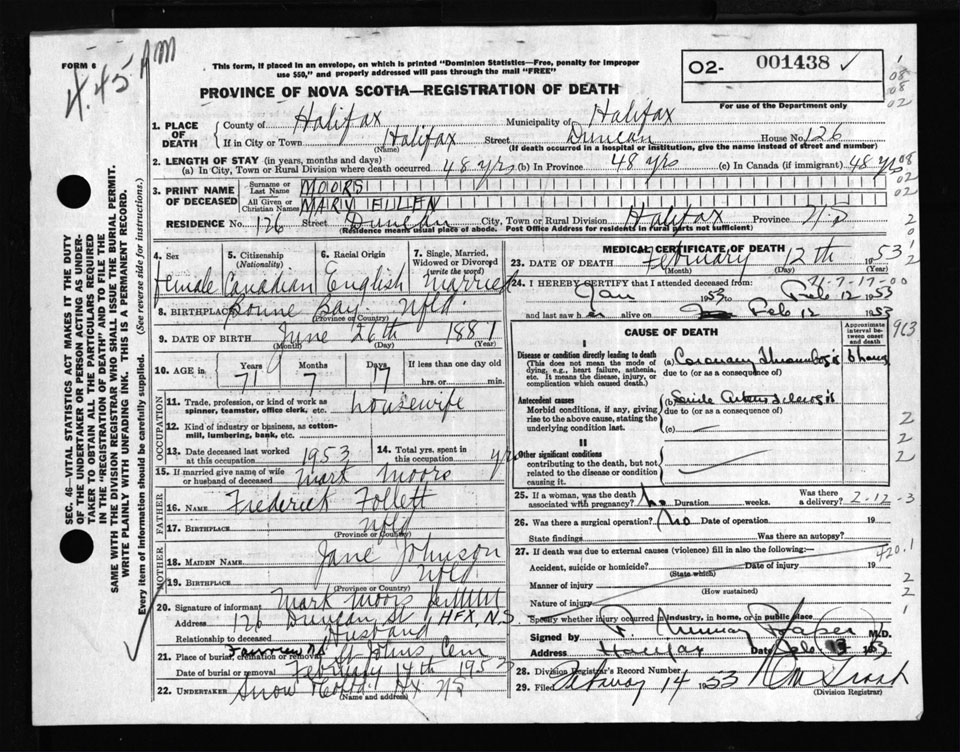 FORM 6
4.45 AM
This form, if placed in an envelope, on which is printed "Dominion Statistics—Free, penalty for improper
use $50," and properly addressed will pass through the mail "FREE"
PROVINCE OF NOVA SCOTIA—REGISTRATION OF DEATH
02- 001438 ✓
For use of the Department only
08
08
02
1. PLACE OF DEATH { County of Halifax Municipality of Halifax
If in City or Town Halifax Street Duncan House No. 126
(Name) (If death occurred in a hospital or institution, give the name instead of street and number)
2. LENGTH OF STAY (in years, months and days)
(a) In City, Town or Rural Division where death occurred 48 yrs (b) In Province 48 yrs (c) In Canada (if immigrant) 48 yrs
08
02
02
3. PRINT NAME OF DECEASED { Surname or Last Name MOORS
All Given or Christian Names MARY ELLEN
RESIDENCE No. 126 Street Duncan City, Town or Rural Division Halifax Province NS
(Residence means usual place of abode. Post Office Address for residents in rural parts not sufficient)
4. Sex Female
5. Citizenship (Nationality) Canadian
6. Racial Origin English
7. Single, Married, Widowed or Divorced (write the word) Married
8. BIRTHPLACE Bonne Bay Nfld.
(Province or Country)
9. DATE OF BIRTH June 26th 1881
(Month) (Day) (Year)
10. AGE in Years 71 Months 7 Days 17 If less than one day old
hrs. or min.
OCCUPATION
11. Trade, profession, or kind of work as
spinner, teamster, office clerk, etc. housewife
12. Kind of industry or business, as cotton-
mill, lumbering, bank, etc.
13. Date deceased last worked
at this occupation 1953
14. Total yrs. spent in
this occupation yrs
15. If married give name of wife
or husband of deceased Mark Moors
FATHER
16. NAME Frederick Follett
17. BIRTHPLACE Nfld
(Province or Country)
MOTHER
18. MAIDEN NAME Jane Johnson
19. BIRTHPLACE Nfld
(Province or Country)
20. Signature of informant Mark Moors
Address 126 Duncan St HFX, N.S.
Relationship to deceased Husband
21. Place of burial, cremation or removal Fairview NS St Johns Cem
Date of burial or removal February 14th 1953
22. UNDERTAKER Snow Hfx NS
(Name and address)
MEDICAL CERTIFICATE OF DEATH
23. DATE OF DEATH February 12th 1953
(Month) (Day)
24. I HEREBY CERTIFY that I attended deceased from:
Jan 1953 to Feb 12 1953
and last saw h er alive on Feb 12 1953
CAUSE OF DEATH
Approximate interval between onset and death
I
Disease or condition directly leading to death
(This does not mean the mode of dying, e.g., heart failure, asthenia, etc. It means the disease, injury, or complication which caused death.)
(a) Coronary Thrombosis 6 hours
due to (or as a consequence of)
Antecedent causes
Morbid conditions, if any, giving rise to the above cause, stating the underlying condition last.
(b) Senile Arteriosclerosis
due to (or as a consequence of)
(c)
II
Other significant conditions
contributing to the death, but not related to the disease or condition causing it.
25. If a woman, was the death
associated with pregnancy? No Duration weeks. Was there a delivery? 2-12-3
26. Was there a surgical operation? No Date of operation 19
State findings Was there an autopsy?
27. If death was due to external causes (violence) fill in also the following:— 420.1
Accident, suicide or homicide? Date of injury 19
(State which)
Manner of injury
(How sustained)
Nature of injury
Specify whether injury occurred in industry, in home, or in public place
Signed by F. Murray M.D.
Address Halifax Date Feb 1953
28. Division Registrar's Record Number
29. Filed February 14 1953
(Division Registrar)
SEC. 46—VITAL STATISTICS ACT MAKES IT THE DUTY
OF THE UNDERTAKER OR PERSON ACTING AS UNDER-
TAKER TO OBTAIN ALL THE PARTICULARS REQUIRED
IN THE "REGISTRATION OF DEATH" AND TO FILE THE
SAME WITH THE DIVISION REGISTRAR WHO SHALL ISSUE THE BURIAL PERMIT.
WRITE PLAINLY WITH UNFADING INK. THIS IS A PERMANENT RECORD.
Every item of information should be carefully supplied. (See reverse side for instructions.)